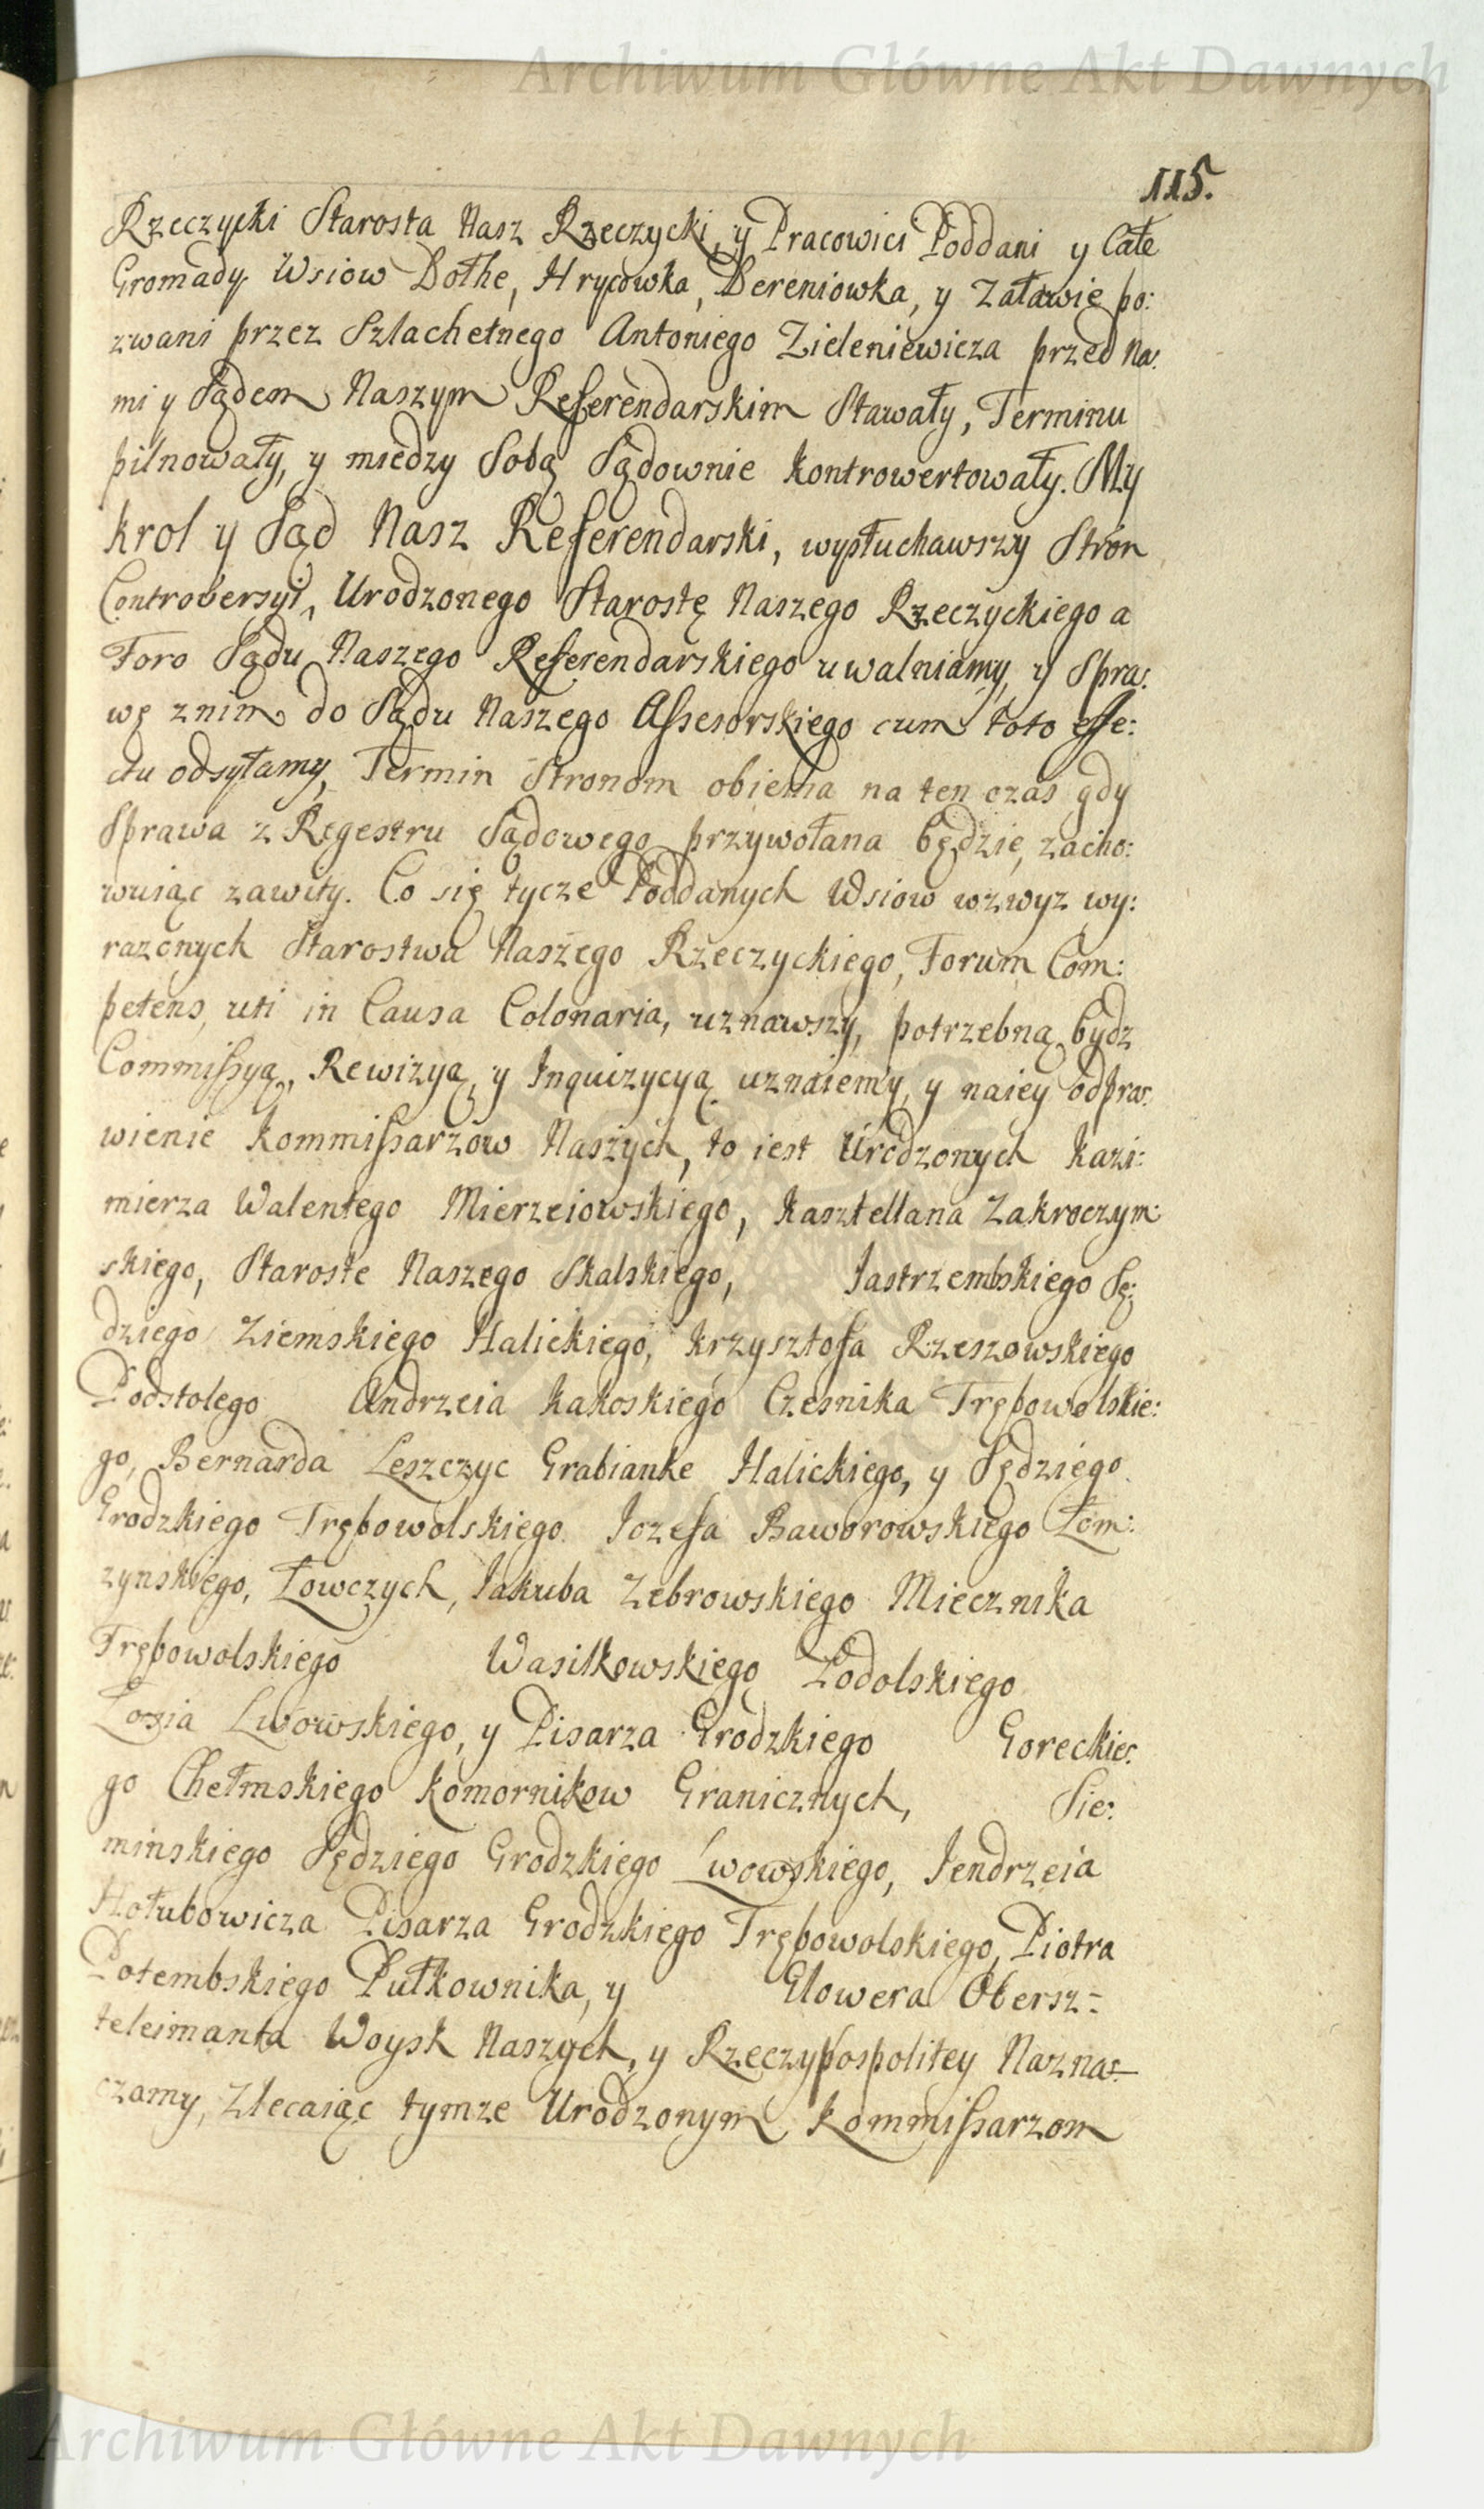 Archiwum Główne Akt Dawnych
115.
Rzeczycki Starosta Nasz Rzeczycki, y Pracowici Poddani y Całe
Gromady Wsiow Dołhe, Hrycowka, Bereniowka, y Załawie po:
zwani przez Szlachetnego Antoniego Zieleniewicza przed Na:
mi y Sądem Naszym Referendarskim Stawały, Terminu
pilnowały, y miedzy Sobą Sądownie kontrowertowały. My
krol y Sąd Nasz Referendarski, wysłuchawszy Stron
Controversyi, Urodzonego Starostę Naszego Rzeczyckiego a
Foro Sądu Naszego Referendarskiego uwalniamy, y Spra:
wę znim do Sądu Naszego Assesorskiego cum toto effe:
ctu odsyłamy, Termin Stronom obiema na ten czas gdy
Sprawa z Regestru Sądowego przywołana będzie, zacho:
wuiąc zawity. Co się tycze Poddanych Wsiow wzwyz wy:
razonych Starostwa Naszego Rzeczyckiego, Forum Com:
petens, uti in Causa Colonaria, uznawszy, potrzebną bydz
Commissyą, Rewizyą, y Inquizycyą uznaiemy, y naiey odpra:
wienie kommissarzow Naszych, to iest Urodzonych kazi:
mierza Walentego Mierzeiowskiego, kasztellana Zakroczym:
skiego, Staroste Naszego Skalskiego, Jastrzembskiego Sę:
dziego Ziemskiego Halickiego, krzysztofa Rzeszowskiego
Podstolego Andrzeia kakoskiego Czesnika Trębowolskie:
go, Bernarda Leszczyc Grabianke Halickiego, y Sędziego
Grodzkiego Trębowolskiego Jozefa Baworowskiego Łom:
zynskiego, Łowczych, Jakuba Zebrowskiego Miecznika
Trębowolskiego Wasilkowskiego Podolskiego
Łosia Lwowskiego, y Pisarza Grodzkiego Goreckie:
go Chełmskiego komornikow Granicznych, Sie:
minskiego Sędziego Grodzkiego Lwowskiego, Jendrzeia
Hołubowicza Pisarza Grodzkiego Trębowolskiego, Piotra
Potembskiego Pułkownika, y Elowera Obersz=
teleimanta Woysk Naszych, y Rzeczypospolitey Nazna:
czamy, Zlecaiąc tymze Urodzonym kommissarzom
Archiwum Główne Akt Dawnych